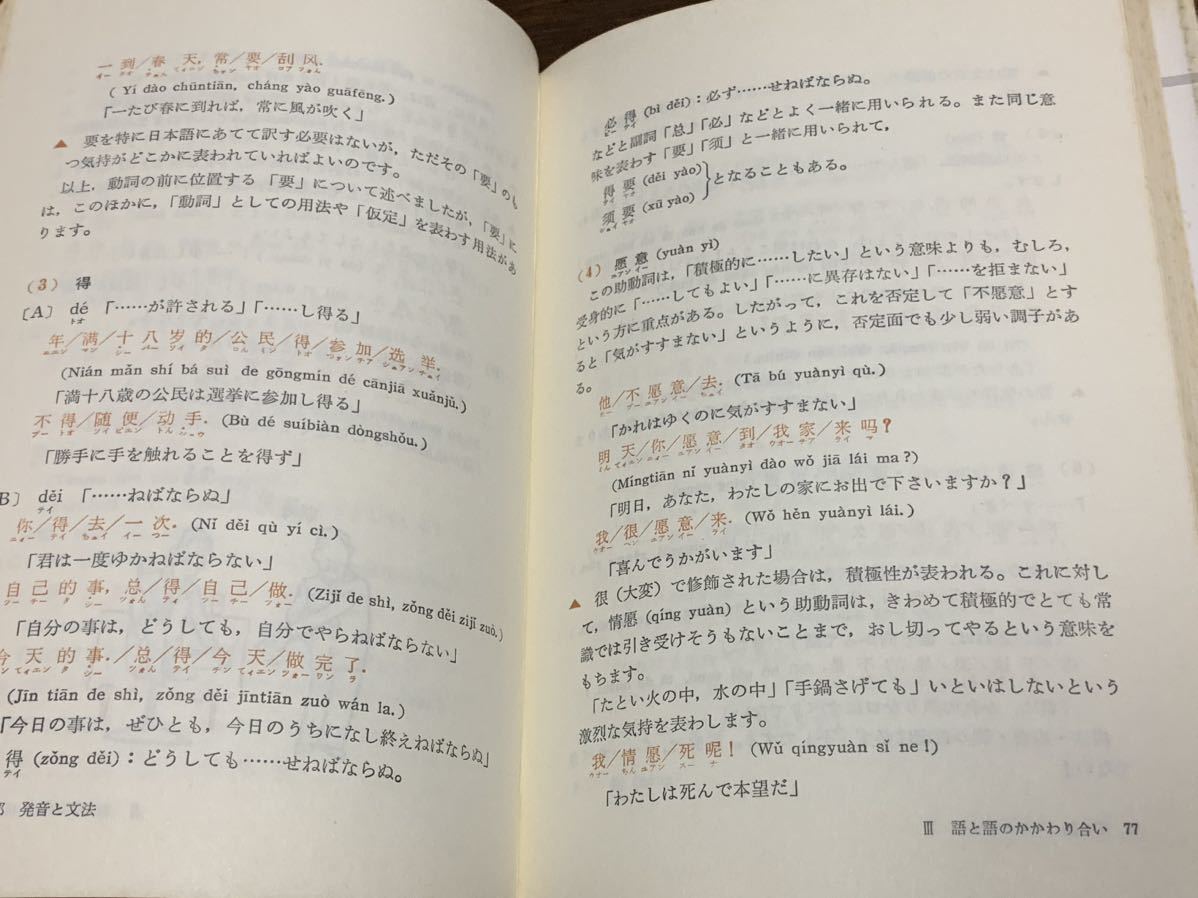 一到／春天，常／要／刮风．
(Yí dào chūntiān, cháng yào guāfēng.)
「一たび春に到れば，常に風が吹く」
▲ 要を特に日本語にあてて訳す必要はないが，ただその「要」のも
つ気持がどこかに表われていればよいのです。
以上，動詞の前に位置する「要」について述べましたが，「要」に
は，このほかに，「動詞」としての用法や「仮定」を表わす用法があ
ります。
(3) 得
〔A〕 dé 「……が許される」「……し得る」
トオ
年／满／十八岁的／公民／得／参加／选举．
(Nián mǎn shí bá suì de gōngmín dé cānjiā xuǎnjǔ.)
「満十八歳の公民は選挙に参加し得る」
不得／随便／动手．(Bù dé suíbiàn dòngshǒu.)
「勝手に手を触れることを得ず」
B〕 děi 「……ねばならぬ」
テイ
你／得／去／一次．(Nǐ děi qù yí cì.)
「君は一度ゆかねばならない」
自己的事，总／得／自己／做．(Zìjǐ de shì, zǒng děi zìjǐ zuò.)
「自分の事は，どうしても，自分でやらねばならない」
今天的事．／总／得／今天／做完了．
(Jīn tiān de shì, zǒng děi jīntiān zuò wán la.)
「今日の事は，ぜひとも，今日のうちになし終えねばならぬ」
得 (zǒng děi)：どうしても……せねばならぬ。
テイ
部 発音と文法
必得 (bì děi)：必ず……せねばならぬ。
ビー テイ
などと副詞「总」「必」などとよく一緒に用いられる。また同じ意
味を表わす「要」「须」と一緒に用いられて，
得要 (děi yào)
テイ ヤオ
须要 (xū yào)
シュイ ヤオ
}となることもある。
(4) 愿意 (yuàn yì)
ユアン イー
この助動詞は，「積極的に……したい」という意味よりも，むしろ，
受身的に「……してもよい」「……に異存はない」「……を拒まない」
という方に重点がある。したがって，これを否定して「不愿意」とす
ると「気がすすまない」というように，否定面でも少し弱い調子があ
る。
他／不愿意／去．(Tā bú yuànyì qù.)
「かれはゆくのに気がすすまない」
明天／你／愿意／到／我家／来吗？
(Míngtiān nǐ yuànyì dào wǒ jiā lái ma?)
「明日，あなた，わたしの家にお出で下さいますか？」
我／很／愿意／来．(Wǒ hěn yuànyì lái.)
「喜んでうかがいます」
▲ 很（大変）で修飾された場合は，積極性が表われる。これに対し
て，情愿 (qíng yuàn) という助動詞は，きわめて積極的でとても常
識では引き受けそうもないことまで，おし切ってやるという意味を
もちます。
「たとい火の中，水の中」「手鍋さげても」いといはしないという
激烈な気持を表わします。
我／情愿／死呢！(Wǔ qíngyuàn sǐ ne!)
「わたしは死んで本望だ」
III 語と語のかかわり合い 77